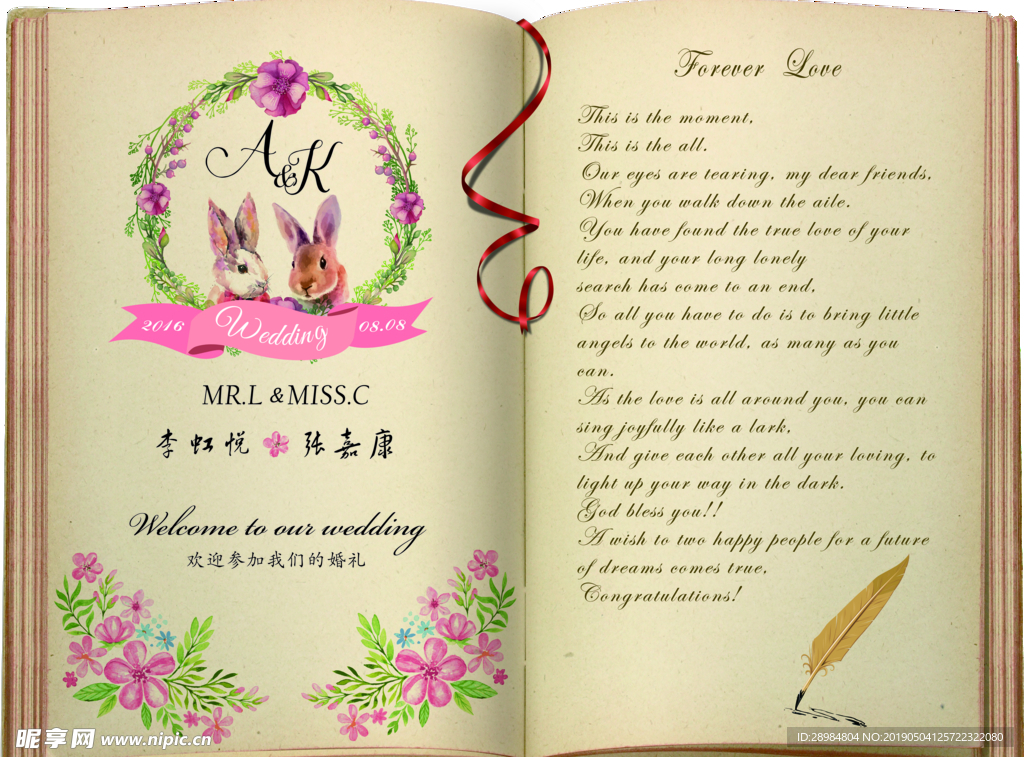 A&K
2016 Wedding 08.08
MR.L & MISS.C
李虹悦 张嘉康
Welcome to our wedding
欢迎参加我们的婚礼
Forever Love
This is the moment,
This is the all.
Our eyes are tearing, my dear friends,
When you walk down the aile.
You have found the true love of your
life, and your long lonely
search has come to an end,
So all you have to do is to bring little
angels to the world, as many as you
can.
As the love is all around you, you can
sing joyfully like a lark,
And give each other all your loving, to
light up your way in the dark.
God bless you!!
A wish to two happy people for a future
of dreams comes true,
Congratulations!
昵享网 www.nipic.cn
ID:28984804 NO:20190504125722322080